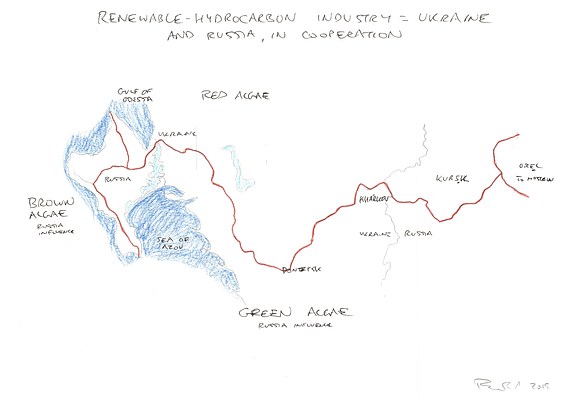 RENEWABLE-HYDROCARBON INDUSTRY = UKRAINE
AND RUSSIA, IN COOPERATION
GULF OF
ODESSA
RED ALGAE
UKRAINE
RUSSIA
BROWN
ALGAE
RUSSIA
INFLUENCE
SEA OF
AZOV
KHARKOV
KURSK
OREL
TO MOSCOW
UKRAINE
RUSSIA
DONETSK
GREEN ALGAE
RUSSIA INFLUENCE
2015